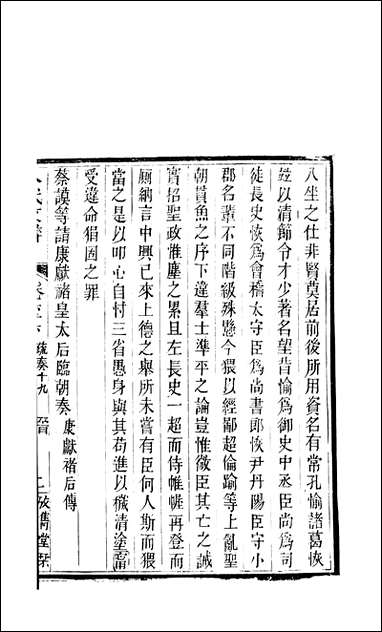 八坐之仕非賢莫居前後所用資名有常孔愉諸葛恢
竝以清節令才少著名望昔愉爲御史中丞臣尚爲司
徒長史恢爲會稽太守臣爲尚書郎恢尹丹陽臣守小
郡名輩不同階級殊懸今猥以輕鄙超倫踰等上亂聖
朝貫魚之序下違羣士準平之論豈惟微臣其亡之誠
實招聖政惟塵之累且左長史一超而侍帷幄再登而
廁納言中興已來上德之舉所未嘗有臣何人斯而猥
當之是以叩心自忖三省愚身與其苟進以穢清塗寧
受違命狷固之罪
蔡謨等請康獻褚皇太后臨朝奏 康獻褚后傳
疏奏十九 晉 攸雋堂栞